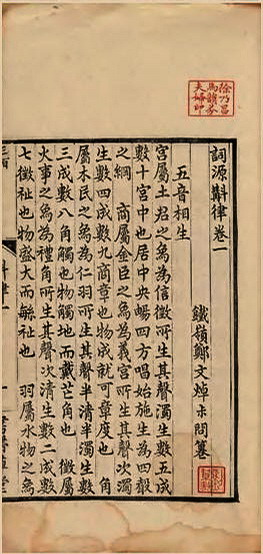 徐乃昌
馬韻芬
夫婦印
詞源斠律卷一
鐵嶺鄭文焯尗問纂
五音相生
宮屬土君之象爲信徵所生其聲濁生數五成
數十宮中也居中央暢四方唱始施生爲四聲
之綱 商屬金臣之象爲義宮所生其聲次濁
生數四成數九商章也物成就可章度也 角
屬木民之象爲仁羽所生其聲半清半濁生數
三成數八角觸也物觸地而戴芒角也 徵屬
火事之象爲禮角所生其聲次清生數二成數
七徵祉也物盛大而緐祉也 羽屬水物之象